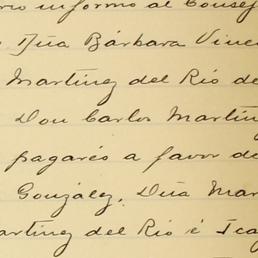 rio informo al Consej
Dña Bárbara Vince
Martínez del Río de
Don Carlos Martín
pagarés a favor de
González, Dña Mar
artínez del Río é Ica